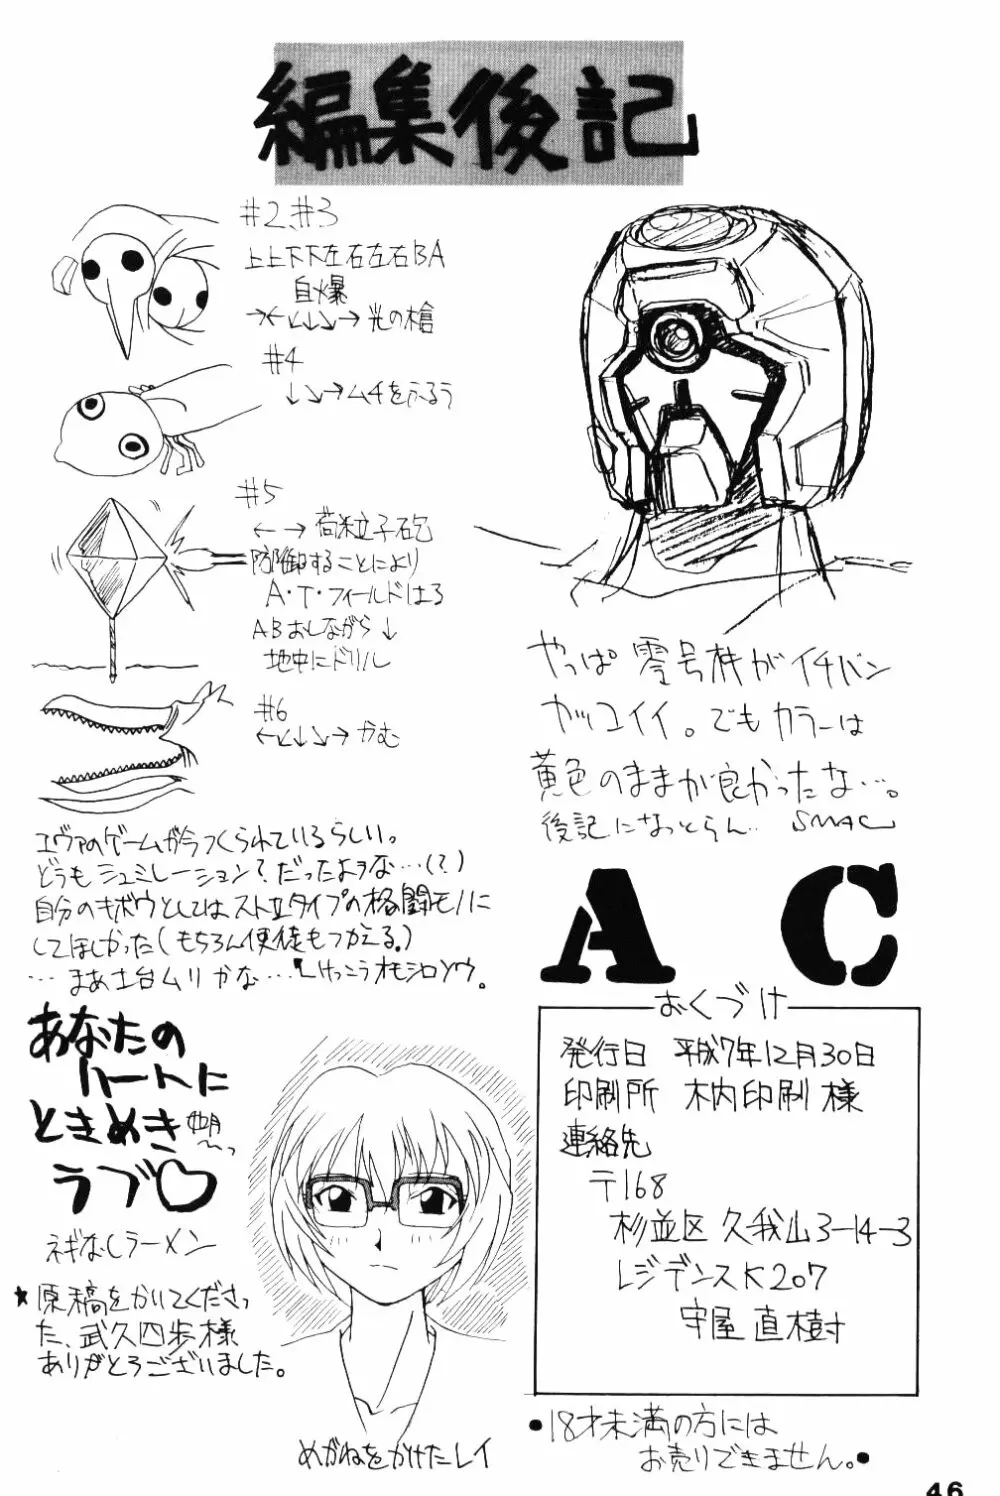 編集後記
#2、#3
上上下下左右左右BA
自爆
→←↙↓↘→光の槍
#4
↓↘→ムチをふるう
#5
←→荷粒子砲
防御することにより
A・T・フィールドはる
ABおしながら↓
地中にドリル
#6
←↙↓↘→かむ
エヴァのゲームが今つくられているらしい。
どうもシュミレーション?だったような…(?)
自分のキボウとしてはストIIタイプの格闘モノに
してほしかった(もちろん使徒もつかえる。)
…まあ土台ムリかな…。けっこうオモシロソウ。
やっぱ零号機がイチバン
カッコイイ。でもカラーは
黄色のままが良かったな…。
後記になっとらん… SMAC
AC
あなたの
ハートに
ときめき
ラブ♡
ネギなしラーメン
★原稿をかいてくださっ
た、武久四歩様
ありがとうございました。
めがねをかけたレイ
おくづけ
発行日 平成7年12月30日
印刷所 木内印刷様
連絡先
〒168
杉並区久我山3-14-3
レジデンスK207
守屋直樹
●18才未満の方には
お売りできません。●
46